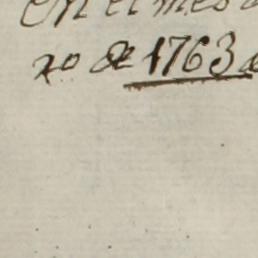 En el mes
ro de 1763